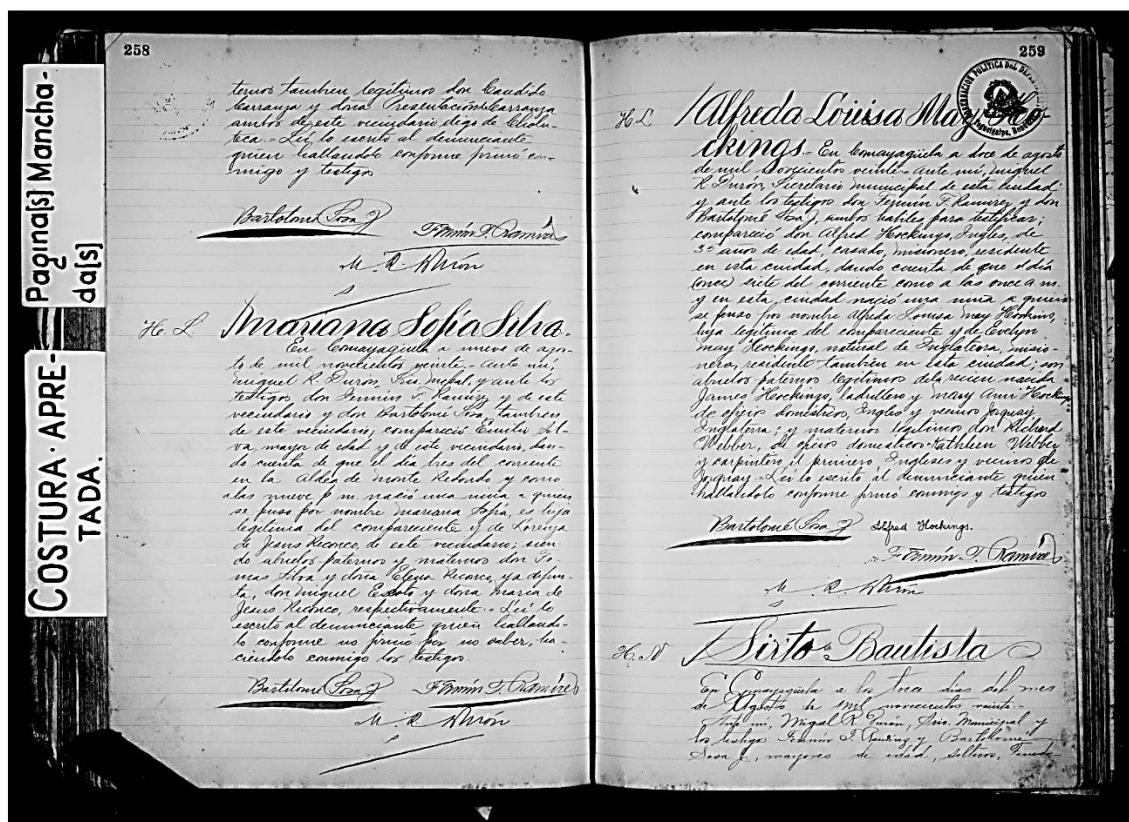 Pagina[s] Mancha-
2
da[s]
COSTURA · APRE-
TADA.
258
ternos tambien legitimos don Candido
Carranza y dona Presentación Carranza
ambos de este vecindario digo de Choluteca
teca. Leí lo escrito al denunciante
quien hallandolo conforme firmó con-
migo y testigos
Bartolomé Sosa J
Fermín F. Ramírez
M. R. Durón
H. L Mariana Sofía Silva.
En Comayagüela a nueve de agos-
to de mil novecientos veinte. ante mi,
miguel R. Duron, Srio. Mcpal, y ante los
testigos don Fermin F. Ramirez y de este
vecindario y don Bartolomé Sosa, tambien
de este vecindario, compareció Emilio Sil-
va, mayor de edad y de este vecindario, dan-
do cuenta de que el día tres del corriente
en la Aldea de Monte Redondo y como
a las nueve p m nació una niña a quien
se puso por nombre mariana Sofía, es hija
legitima del compareciente y de Lorenza
de Jesus Riconco, de este vecindario; sien-
do abuelos paternos y maternos don To-
mas Silva y dona Elena Reconco, ya difun-
ta, don miguel y dona maria de
Jesus Reconco, respectivamente. Leí lo
escrito al denunciante quien hallando-
lo conforme no firmó por no saber, ha-
ciendolo conmigo los testigos.
Bartolomé Sosa J
Fermín F. Ramírez
M. R. Durón
259
H L Alfreda Louisa May Ho-
ckings. En Comayagüela a doce de agosto
de mil novecientos veinte. ante mi, miguel
R. Durón, Secretario municipal de esta ciudad
y ante los testigos don Fermin F. Ramirez y don
Bartolomé Sosa J, ambos habiles para testificar;
compareció don Alfred Hockings, Ingles, de
años de edad, casado, misionero, residente
en esta ciudad, dando cuenta de que el día
(once) siete del corriente como a las once a m.
y en esta ciudad nació una niña a quien
se puso por nombre Alfreda Louisa May Hockins,
hija legitima del compareciente y de Evelyn
may Hockings, natural de Inglaterra, misio-
nera, residente tambien en esta ciudad; son
abuelos paternos legitimos dela recien nacida
James Hockings, ladrillero y mary Ann Hockings
de oficio domesticos, Ingles y vecinos Jorquay
Inglaterra; y maternos legitimos don Richard
Webber, de oficio domesticos Kathleen Webber
y carpintero el primero, Ingleses y vecinos de
Jorquay. Leí lo escrito al denunciante quien
hallandolo conforme firmó conmigo y testigos
Bartolomé Sosa J
Alfred Hockings.
Fermín F. Ramírez
M. R. Durón
H. N Sixto Bautista
En Comayagüela a los trece dias del mes
de Agosto de mil novecientos veinte.
Ante mi, Miguel R. Durón, Srio. Municipal y
los testigos Fermín F. Ramirez y Bartolomé
Sosa J, mayores de edad, solteros,